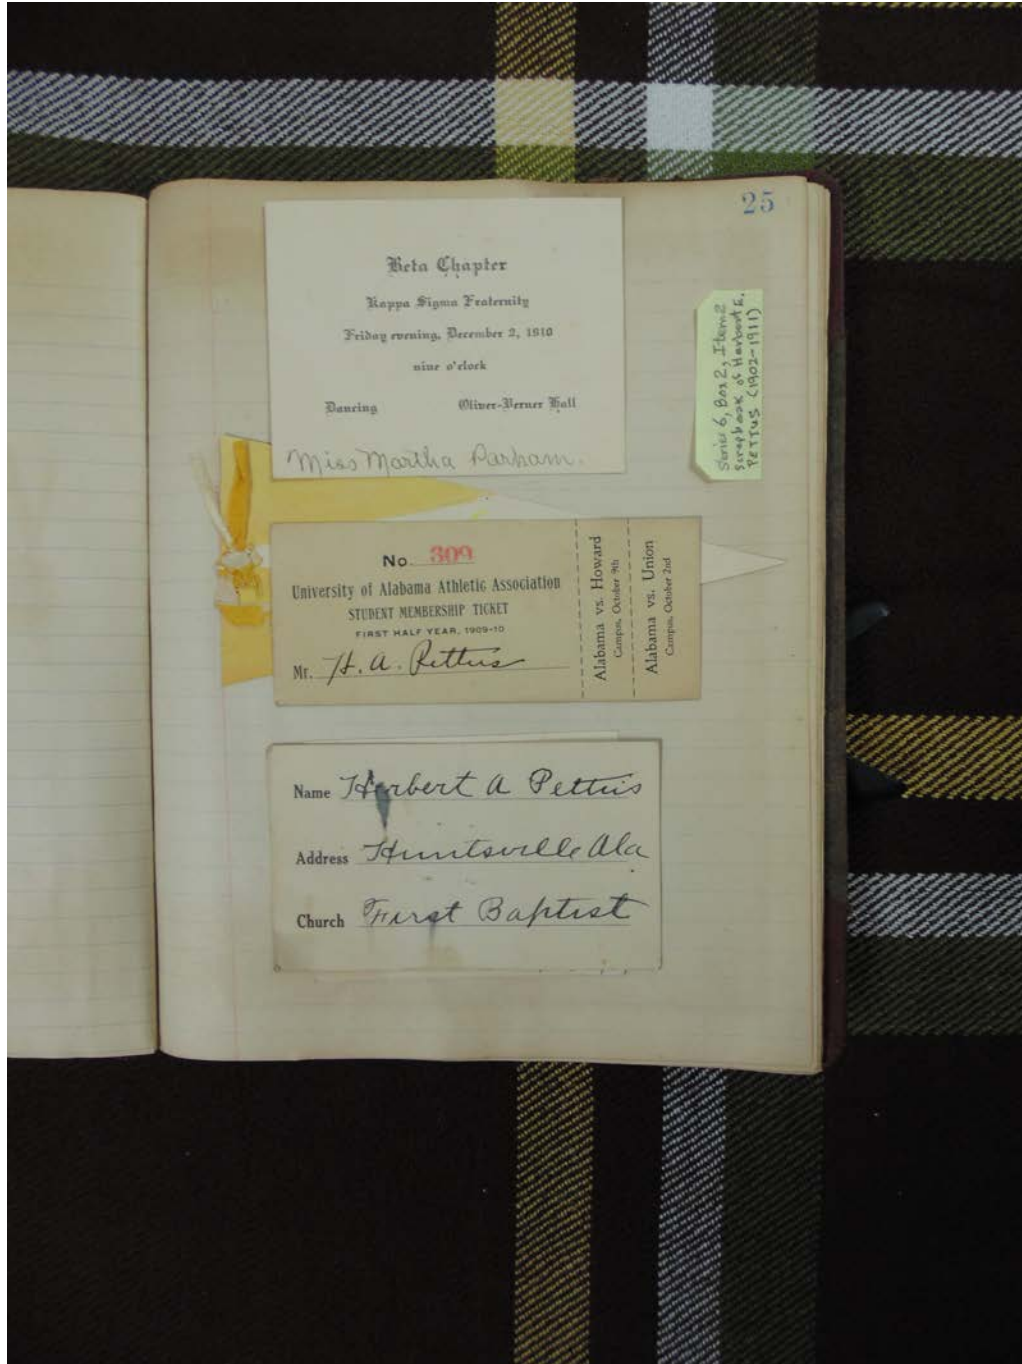 25
Beta Chapter
Kappa Sigma Fraternity
Friday evening, December 2, 1910
nine o'clock
Dancing Oliver-Berner Hall
Miss Martha Parham.
Series 6, Box 2, Item 2
Scrapbook of Herbert E.
PETTUS (1902-1911)
No. 309
University of Alabama Athletic Association
STUDENT MEMBERSHIP TICKET
FIRST HALF YEAR, 1909-10
Mr. H. A. Pettus
Alabama vs. Howard
Campus, October 9th
Alabama vs. Union
Campus, October 2nd
Name Herbert A Pettus
Address Huntsville Ala
Church First Baptist